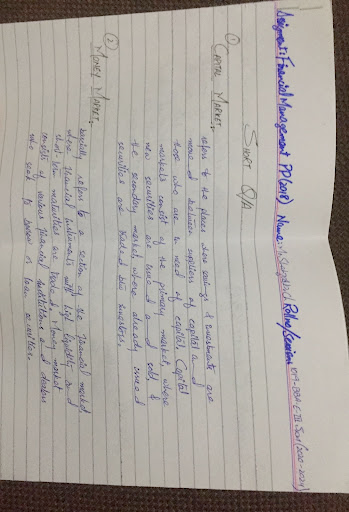 Assignment: Financial Management PP(2018) Name: Roll no/Session (2020-2024)
SHORT Q/A
① CAPITAL MARKET.
refers to the places where savings & investments are
moved between suppliers of capital and
those who are in need of capital. Capital
markets consist of the primary market, where
new securities are issued and sold, &
the secondary market, where already issued
securities are traded b/w investors.
② MONEY MARKET.
basically refers to a section of the financial market
where financial instruments with high liquidity and
short-term maturities are traded. Money market
consists of various financial institutions and dealers
who seek to borrow or loan securities.